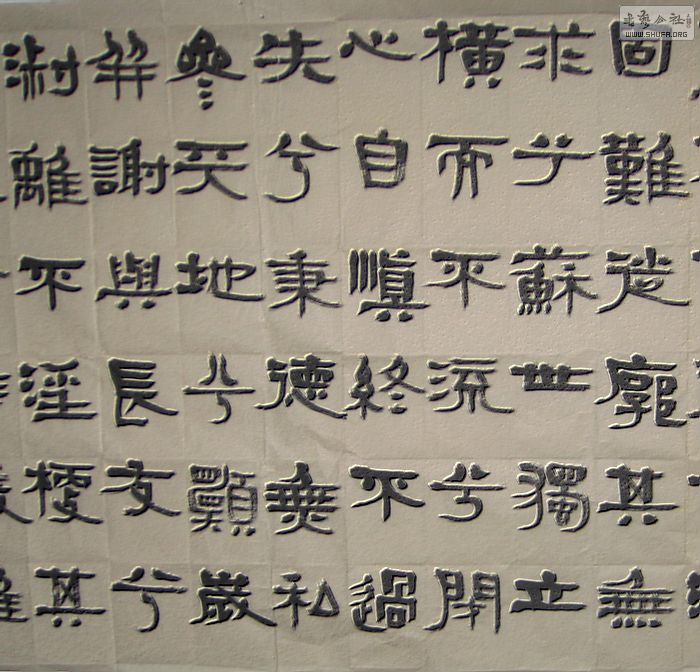 固難徙廓其無
求兮蘇世獨立
橫而不流兮閉
心自慎終不過
失兮秉德無私
參天地兮願歲
并謝與長友兮
淑離不淫梗其
书艺公社
WWW.SHUFA.ORG